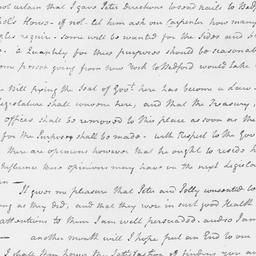 not certain that I gave Peter directions to send nails to Bedford
House - if not - let him ask our Carpenter how many
require - some will be wanted for the sides and
a Quantity for these purposes should be seasonab
some person going from New York to Bedford would take
Bill fixing the Seat of Govt. here has become a Law -
Legislature shall convene here, and that the Treasury,
offices shall be removed to this place as soon as the
for the Purpose shall be made - with Respect to the Gov
there are opinions however that he ought to reside h
Influence these opinions may have on the next Legisla
It gives me pleasure that Peter and Polly consented to
as they did, and that they were in such good Health
attentions to them I am well persuaded, and so I am
another month will I hope put an End to our
I shall then have the Satisfaction of finding you an